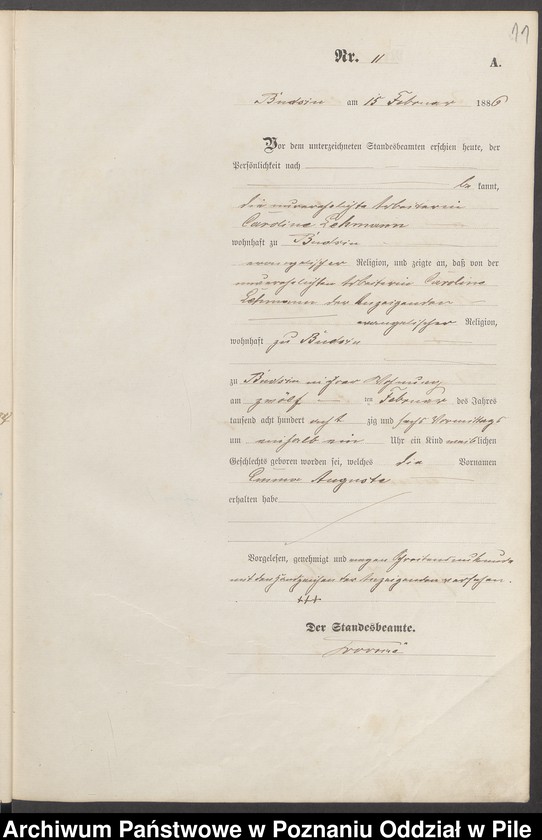 11
Nr. 11
A.
Budsin am 15 Februar 1886
Vor dem unterzeichneten Standesbeamten erschien heute, der
Persönlichkeit nach
be kannt,
die unverehelichte Arbeiterin
Caroline Lehmann
wohnhaft zu Budsin
evangelischer Religion, und zeigte an, daß von der
unverehelichten Arbeiterin Caroline
Lehmann der Anzeigenden
evangelischer Religion,
wohnhaft zu Budsin
zu Budsin in ihrer Wohnung
am zwölf ten Februar des Jahres
tausend acht hundert acht zig und sechs Vormittags
um einhalb ein Uhr ein Kind weiblichen
Geschlechts geboren worden sei, welches die Vornamen
Emma Auguste
erhalten habe
Vorgelesen, genehmigt und wegen Schreibensunkunde
mit den Handzeichen der Anzeigenden versehen.
+++
Der Standesbeamte.
Archiwum Państwowe w Poznaniu Oddział w Pile